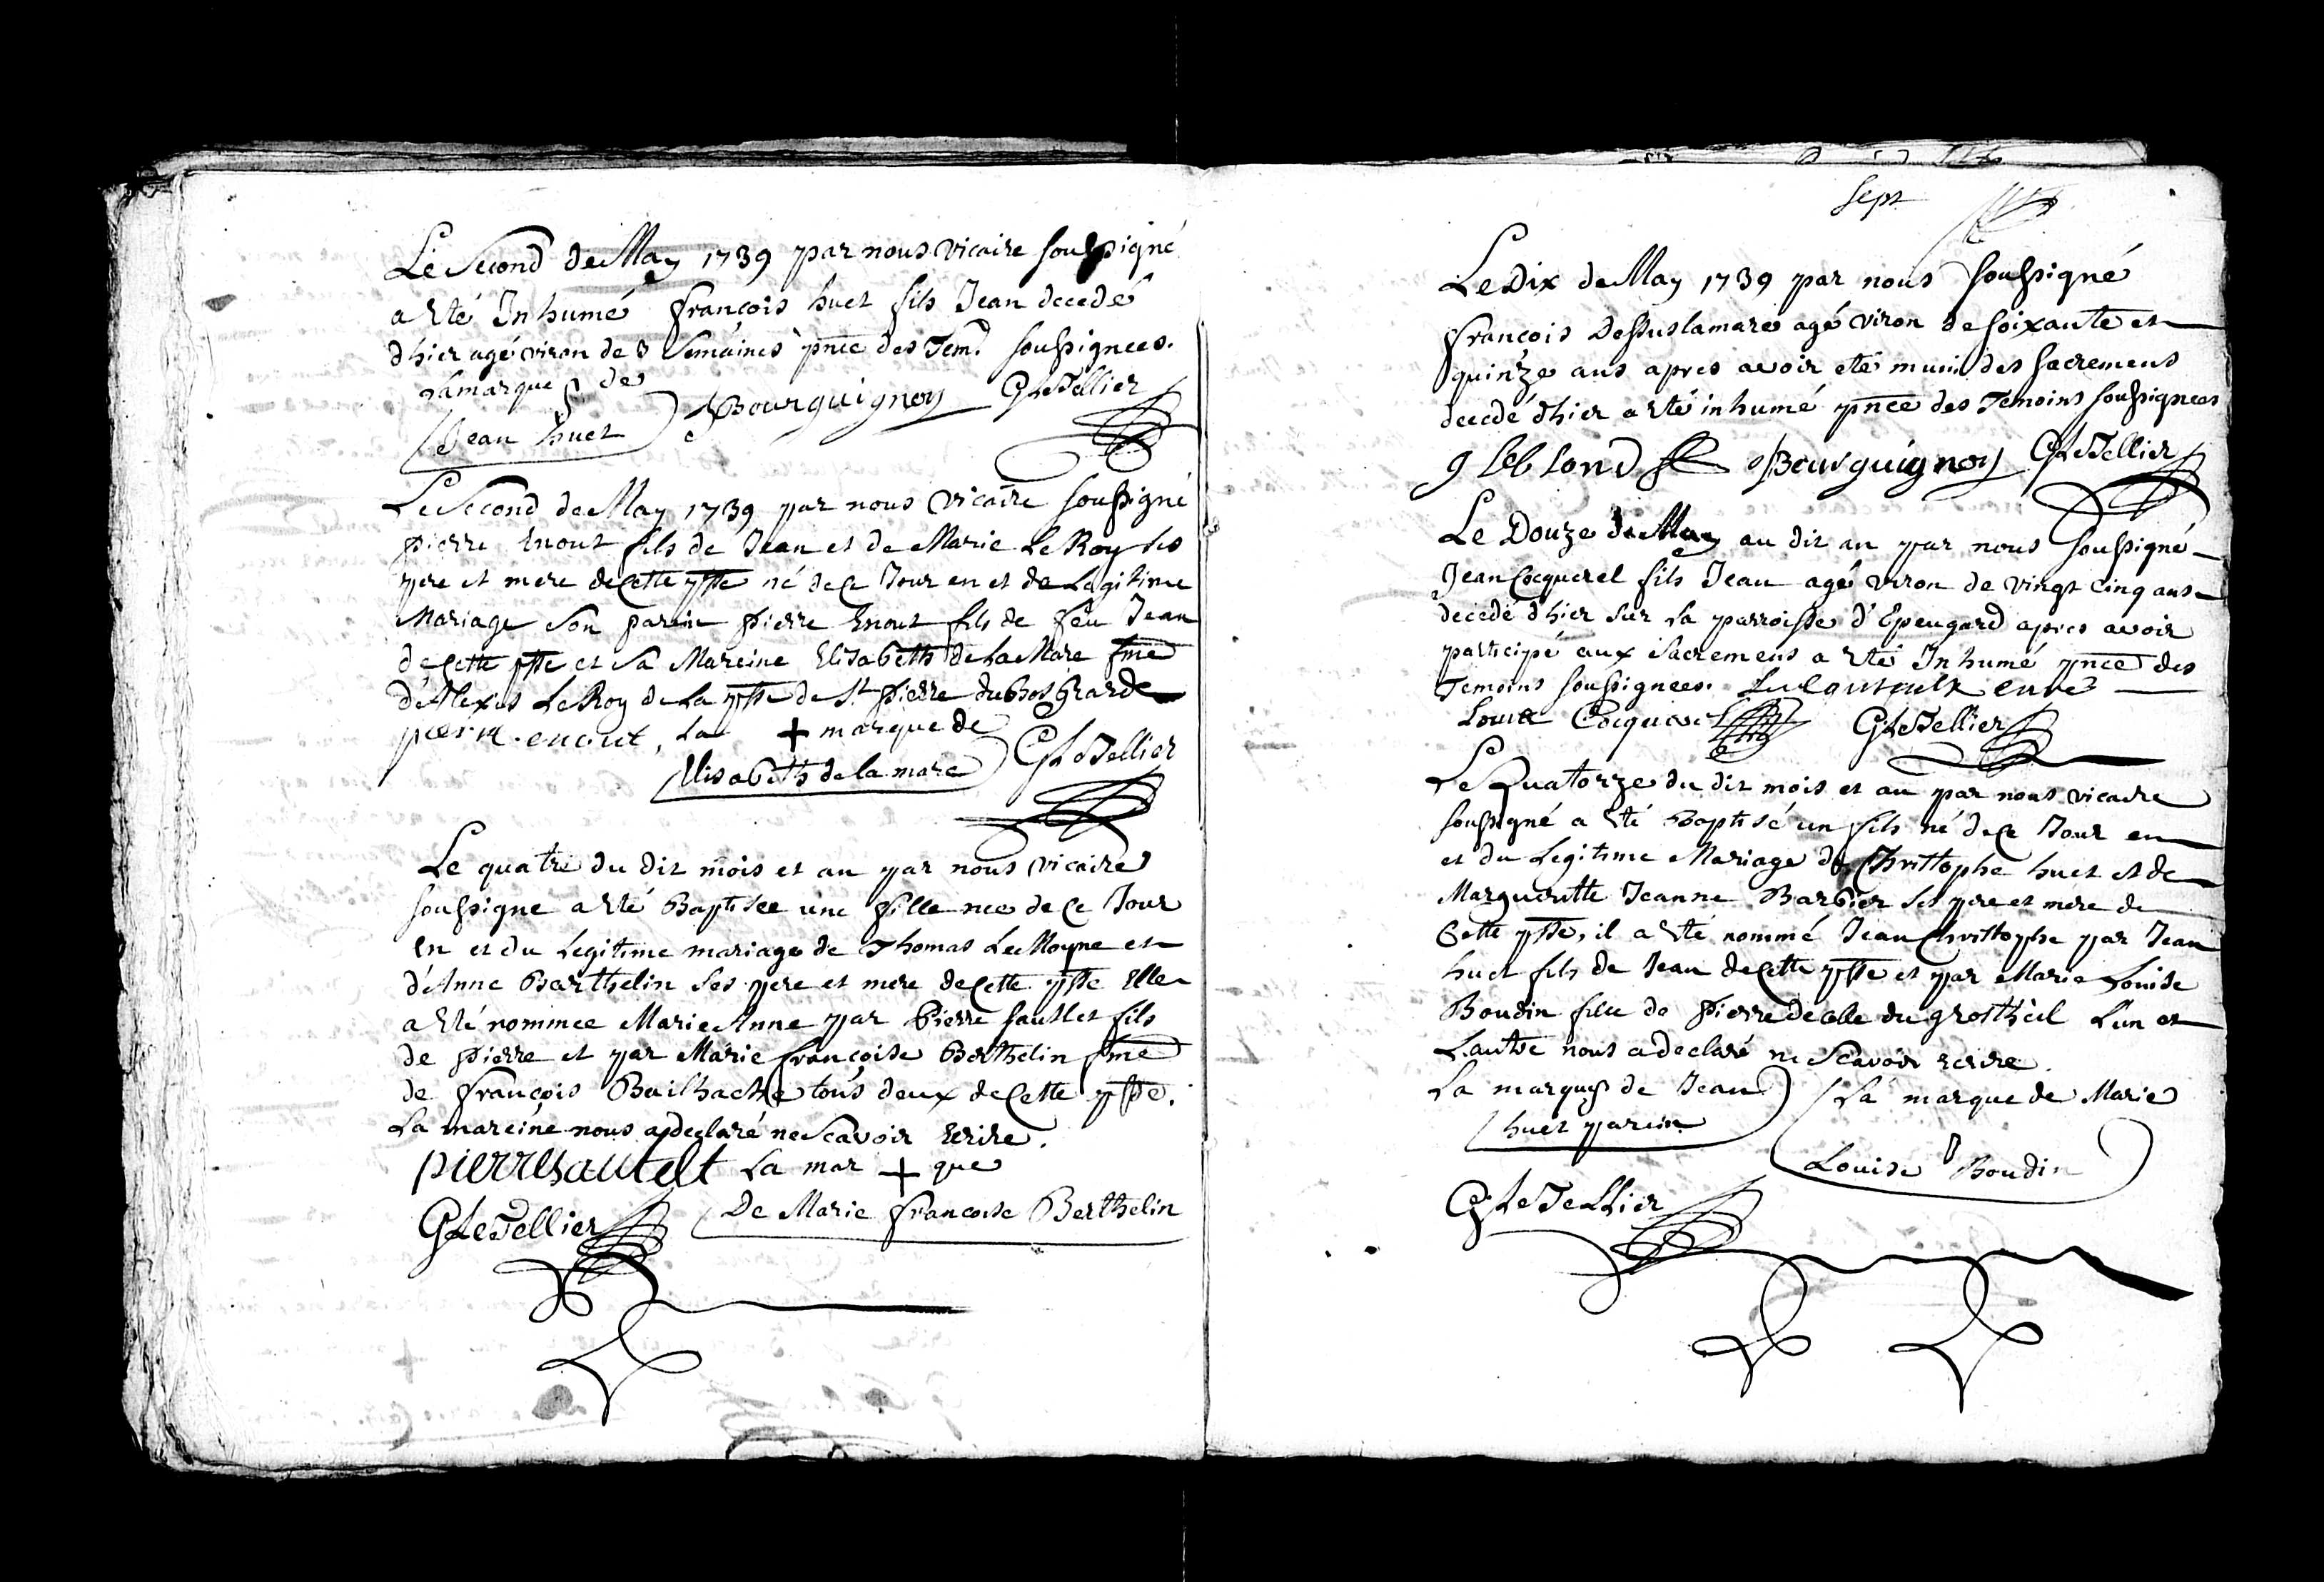 Le Second de May 1739 par nous vicaire soussigné
a eté Inhumé françois huet fils Jean decedé
dhier agé viron de 3 Semaines pnce des Tem. soussignees.
La marque de
Jean huet Bourguignon G LeTellier
Le Second de May 1739 par nous vicaire soussigné
pierre Enout fils de Jean et de Marie Le Roy ses
pere et mere de Cette psse né de Ce Jour en et de Legitime
Mariage Son parein pierre Enout fils de feu Jean
de Cette psse et Sa Mareine Elisabeth de La Mare fme
d'Alexis Le Roy de La psse de St pierre du Bosguarde
pierre enout, La + marque de
Elisabeth de la mare G LeTellier
Le quatre du dit mois et an par nous vicaire
soussigne a eté Baptisee une fille nee de Ce Jour
En et du Legitime mariage de Thomas Le Moyne et
d'Anne Berthelin Ses pere et mere de Cette psse Elle
a eté nommee Marie Anne par Pierre sautelet fils
de pierre et par Marie françoise Berthelin fme
de françois Bailhache tous deux de Cette psse.
La mareine nous a declaré ne Scavoir Ecrire.
pierre sautelt La mar + que
G LeTellier De Marie francoise Berthelin
Sept
Le Dix de May 1739 par nous soussigné
françois Dessuslamare agé viron de soixante et
quinze ans apres avoir eté muni des sacremens
decedé dhier a eté inhumé pnce des Temoins soussignees
g leblond Bourguignon G LeTellier
Le Douze de May au dit an par nous soussigné
Jean Cocquerel fils Jean agé viron de vingt Cinq ans
decedé dhier sur La parroisse d'Epeugard apres avoir
participé aux Sacremens a eté Inhumé pnce des
Temoins soussignees.
Louis Cocquerel G LeTellier
Le Quatorze du dit mois et an par nous vicaire
soussigné a eté Baptisé un fils né de Ce Jour en
et du Legitime Mariage de Christophe huet et de
Margueritte Jeanne Barbier Ses pere et mere de
Cette psse, il a eté nommé Jean Christophe par Jean
huet fils de Jean de Cette psse et par Marie Louise
Boudin fille de pierre de celle du grostheil L'un et
L'autre nous a declaré ne Scavoir ecrire.
La marque de Jean La marque de Marie
huet parein
Louise Boudin
G LeTellier